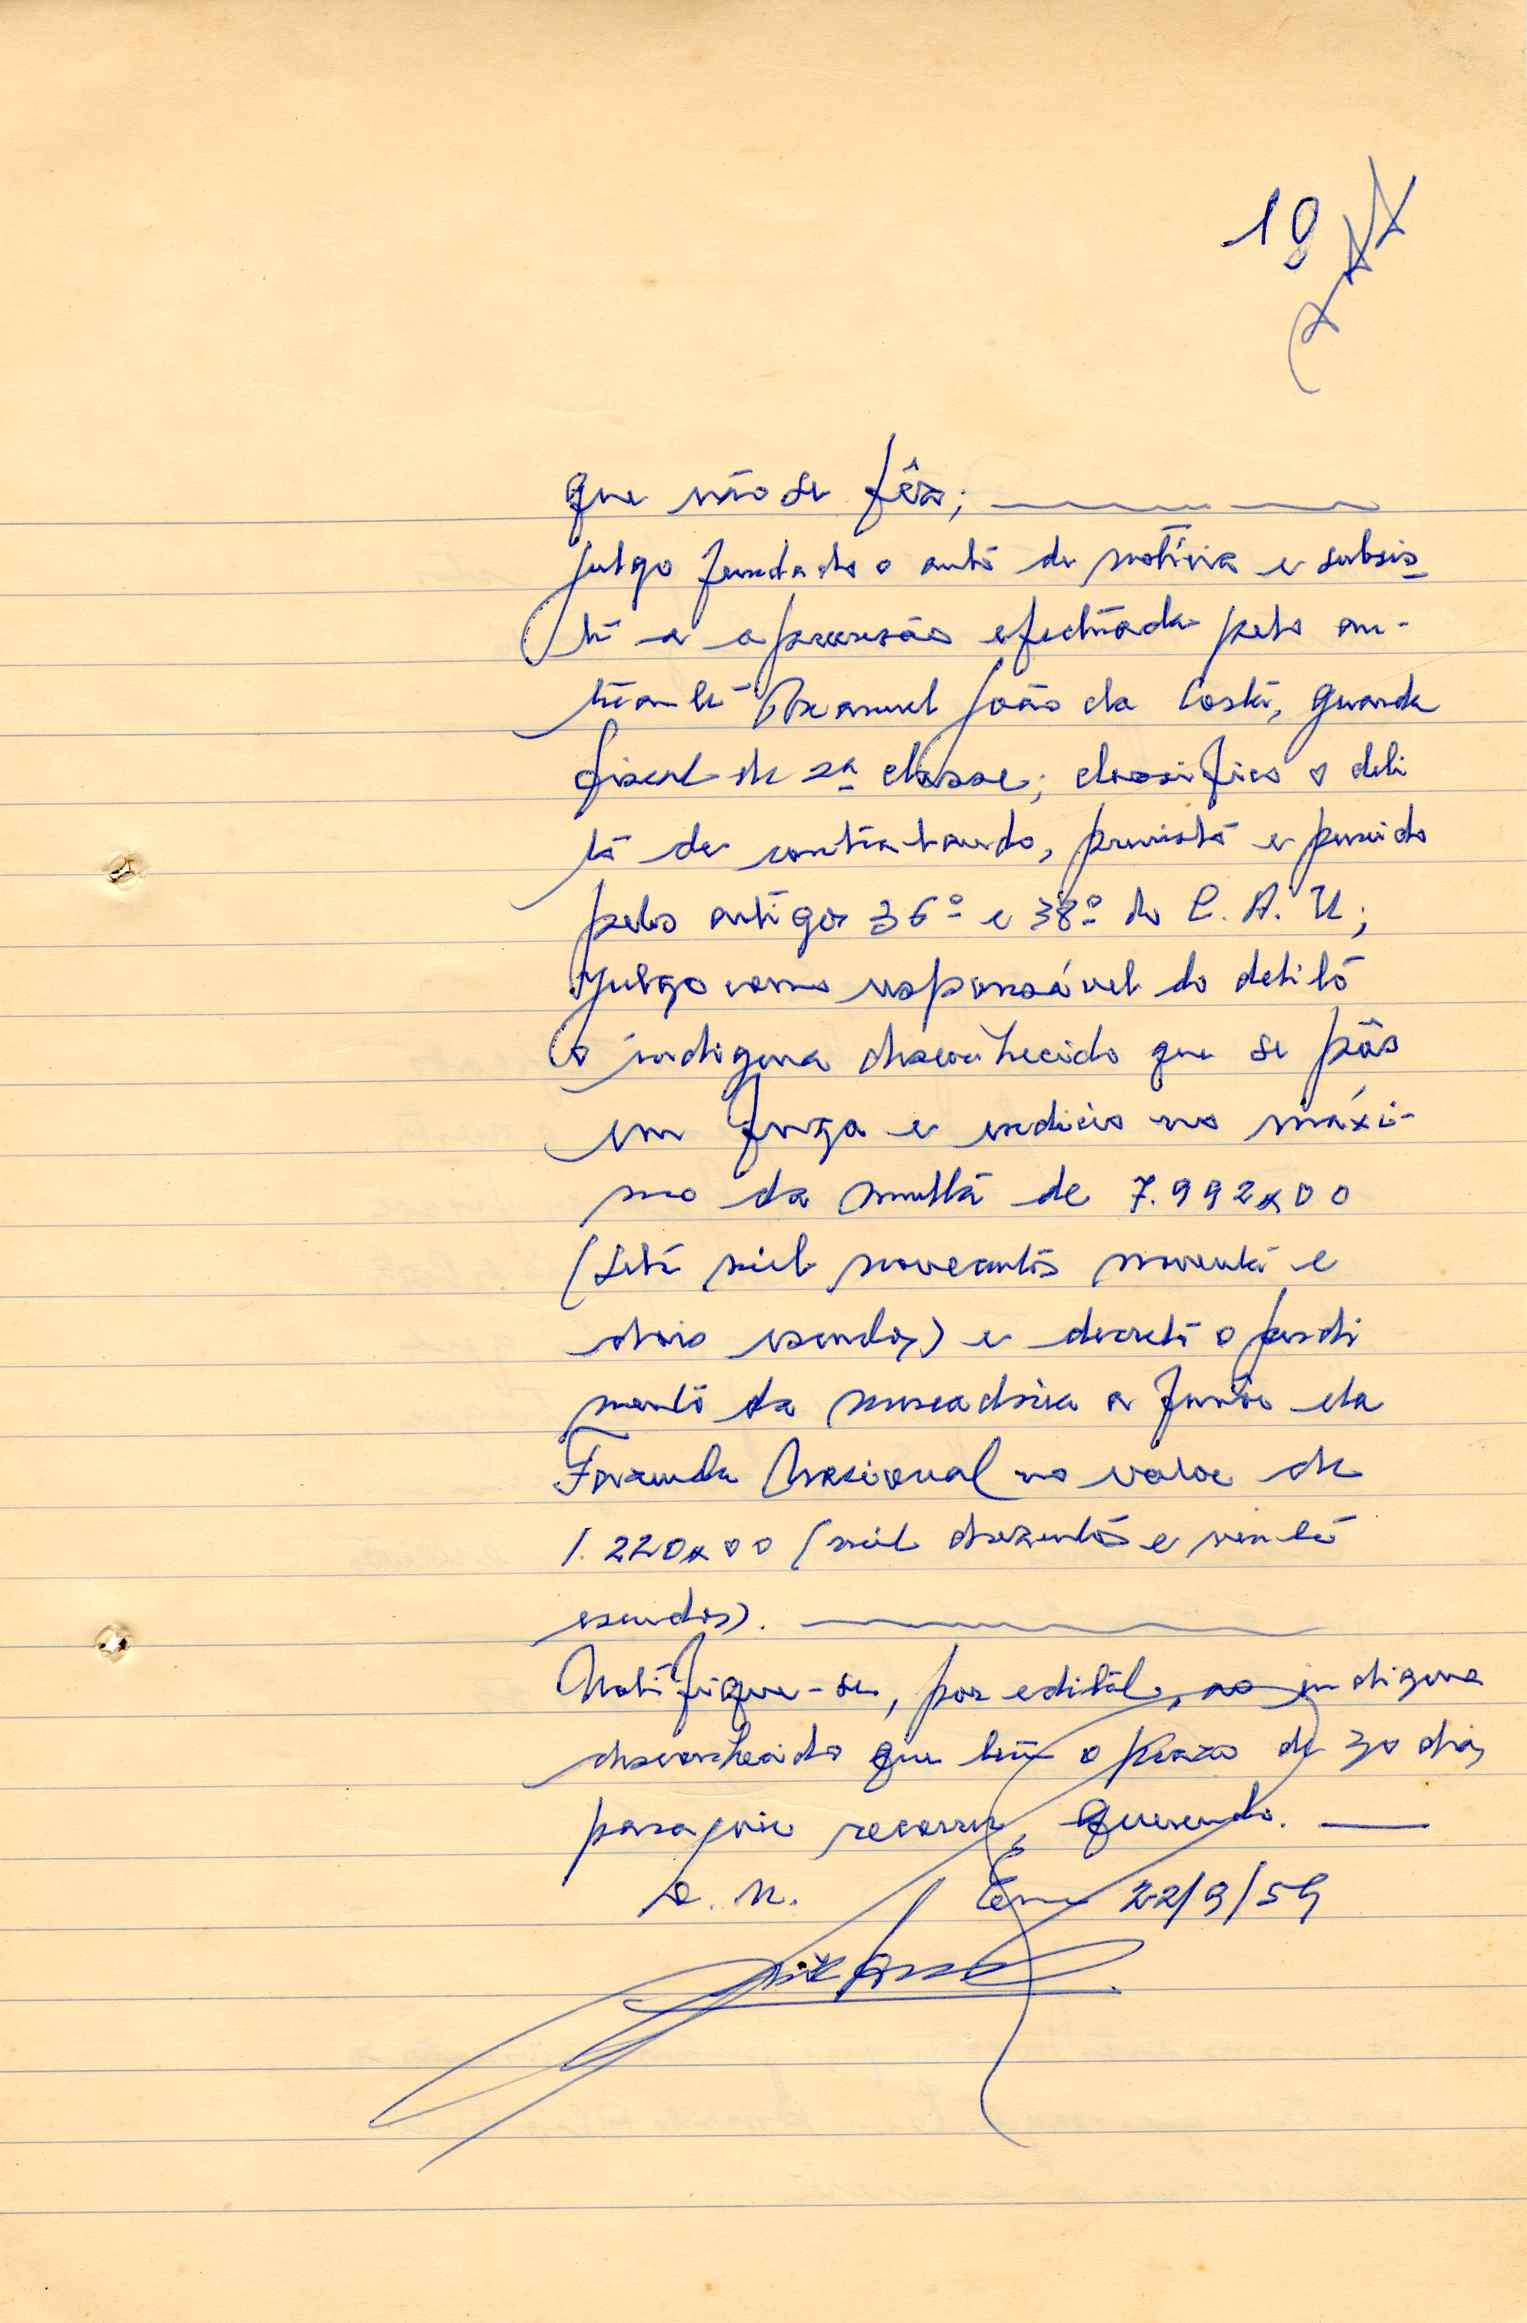 18
que não se fêz;
julgo fundado o auto de notícia e subsis-
te a apreensão efectuada pelo au-
tuante Manuel João da Costa, guarda
fiscal de 2ª classe; classifico o deli
to de contrabando, previsto e punido
pelos artigos 36º e 38º do C. A. U;
Julgo como responsável do delito
o indigena desconhecido que se pôs
em fuga e no máxi-
mo da multa de 7.992$00
(sete mil novecentos noventa e
dois escudos) e decreto o perdi
mento da mercadoria a favor da
Fazenda Nacional no valor de
1.220$00 (mil duzentos e vinte
escudos).
Notifique-se, por edital, ao indigena
desconhecido que tem o prazo de 30 dias
para recorrer, querendo.
Em 22/9/59